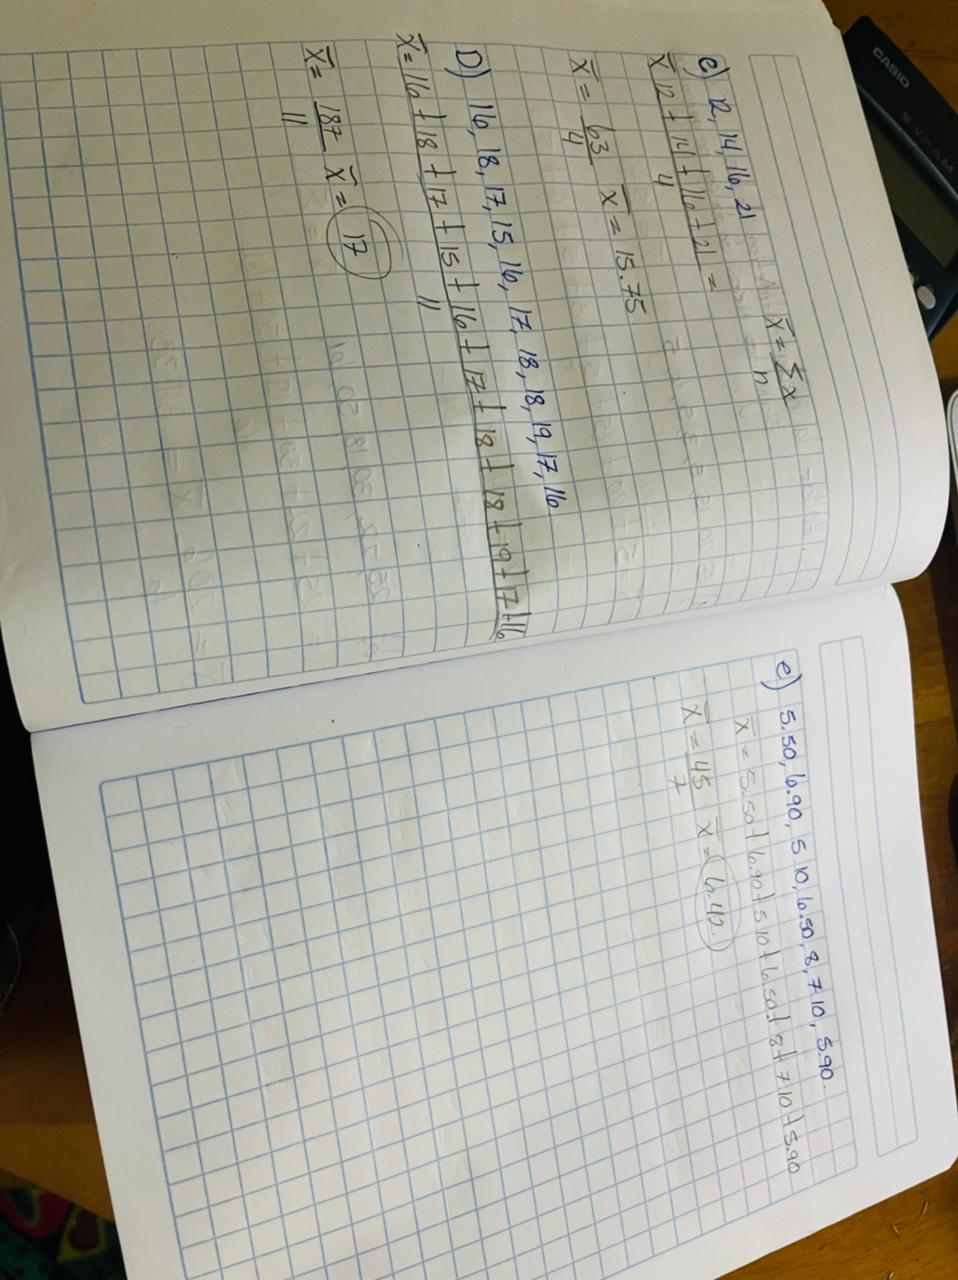 CASIO
S-V.P.A.M.
x̄ = Σx
n
c) 12, 14, 16, 21
x̄ 12 + 14 + 16 + 21 =
4
x̄ = 63 x̄ = 15.75
4
D) 16, 18, 17, 15, 16, 17, 18, 18, 19, 17, 16
x̄ = 16 + 18 + 17 + 15 + 16 + 17 + 18 + 18 + 19 + 17 + 16
11
x̄ = 187 x̄ = 17
11
e) 5.50, 6.90, 5.10, 6.50, 8, 7.10, 5.90
x̄ = 5.50 + 6.90 + 5.10 + 6.50 + 8 + 7.10 + 5.90
x̄ = 45 x̄ = 6.42
7